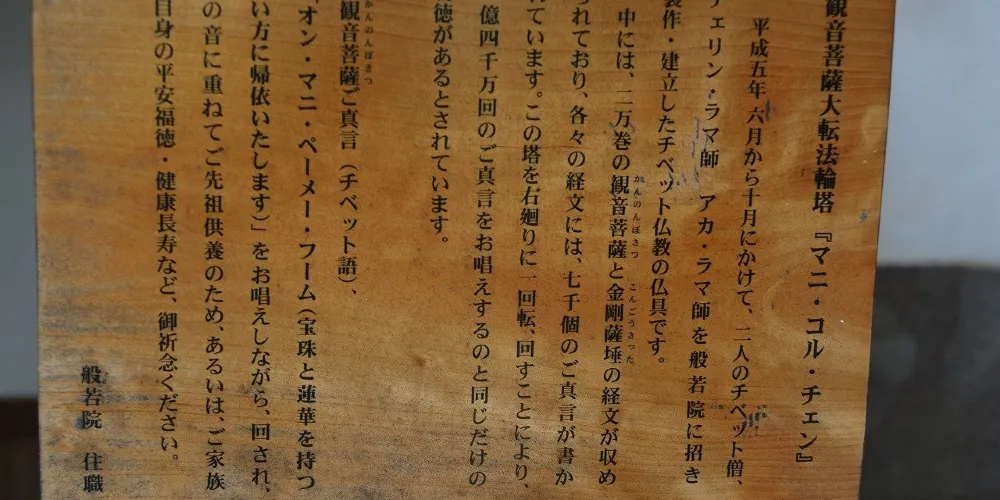 観音菩薩大転法輪塔『マニ・コル・チェン』
平成五年六月から十月にかけて、二人のチベット僧、
チェリン・ラマ師 アカ・ラマ師を般若院に招き
製作・建立したチベット仏教の仏具です。
中には、二万巻の観音菩薩と金剛薩埵の経文が収め
られており、各々の経文には、七千個のご真言が書か
れています。この塔を右廻りに一回転、回すことにより、
億四千万回のご真言をお唱えするのと同じだけの
徳があるとされています。
観音菩薩ご真言（チベット語）、
「オン・マニ・ペーメー・フーム（宝珠と蓮華を持つ
い方に帰依いたします）」をお唱えしながら、回され、
の音に重ねてご先祖供養のため、あるいは、ご家族
自身の平安福徳・健康長寿など、御祈念ください。
般若院 住職